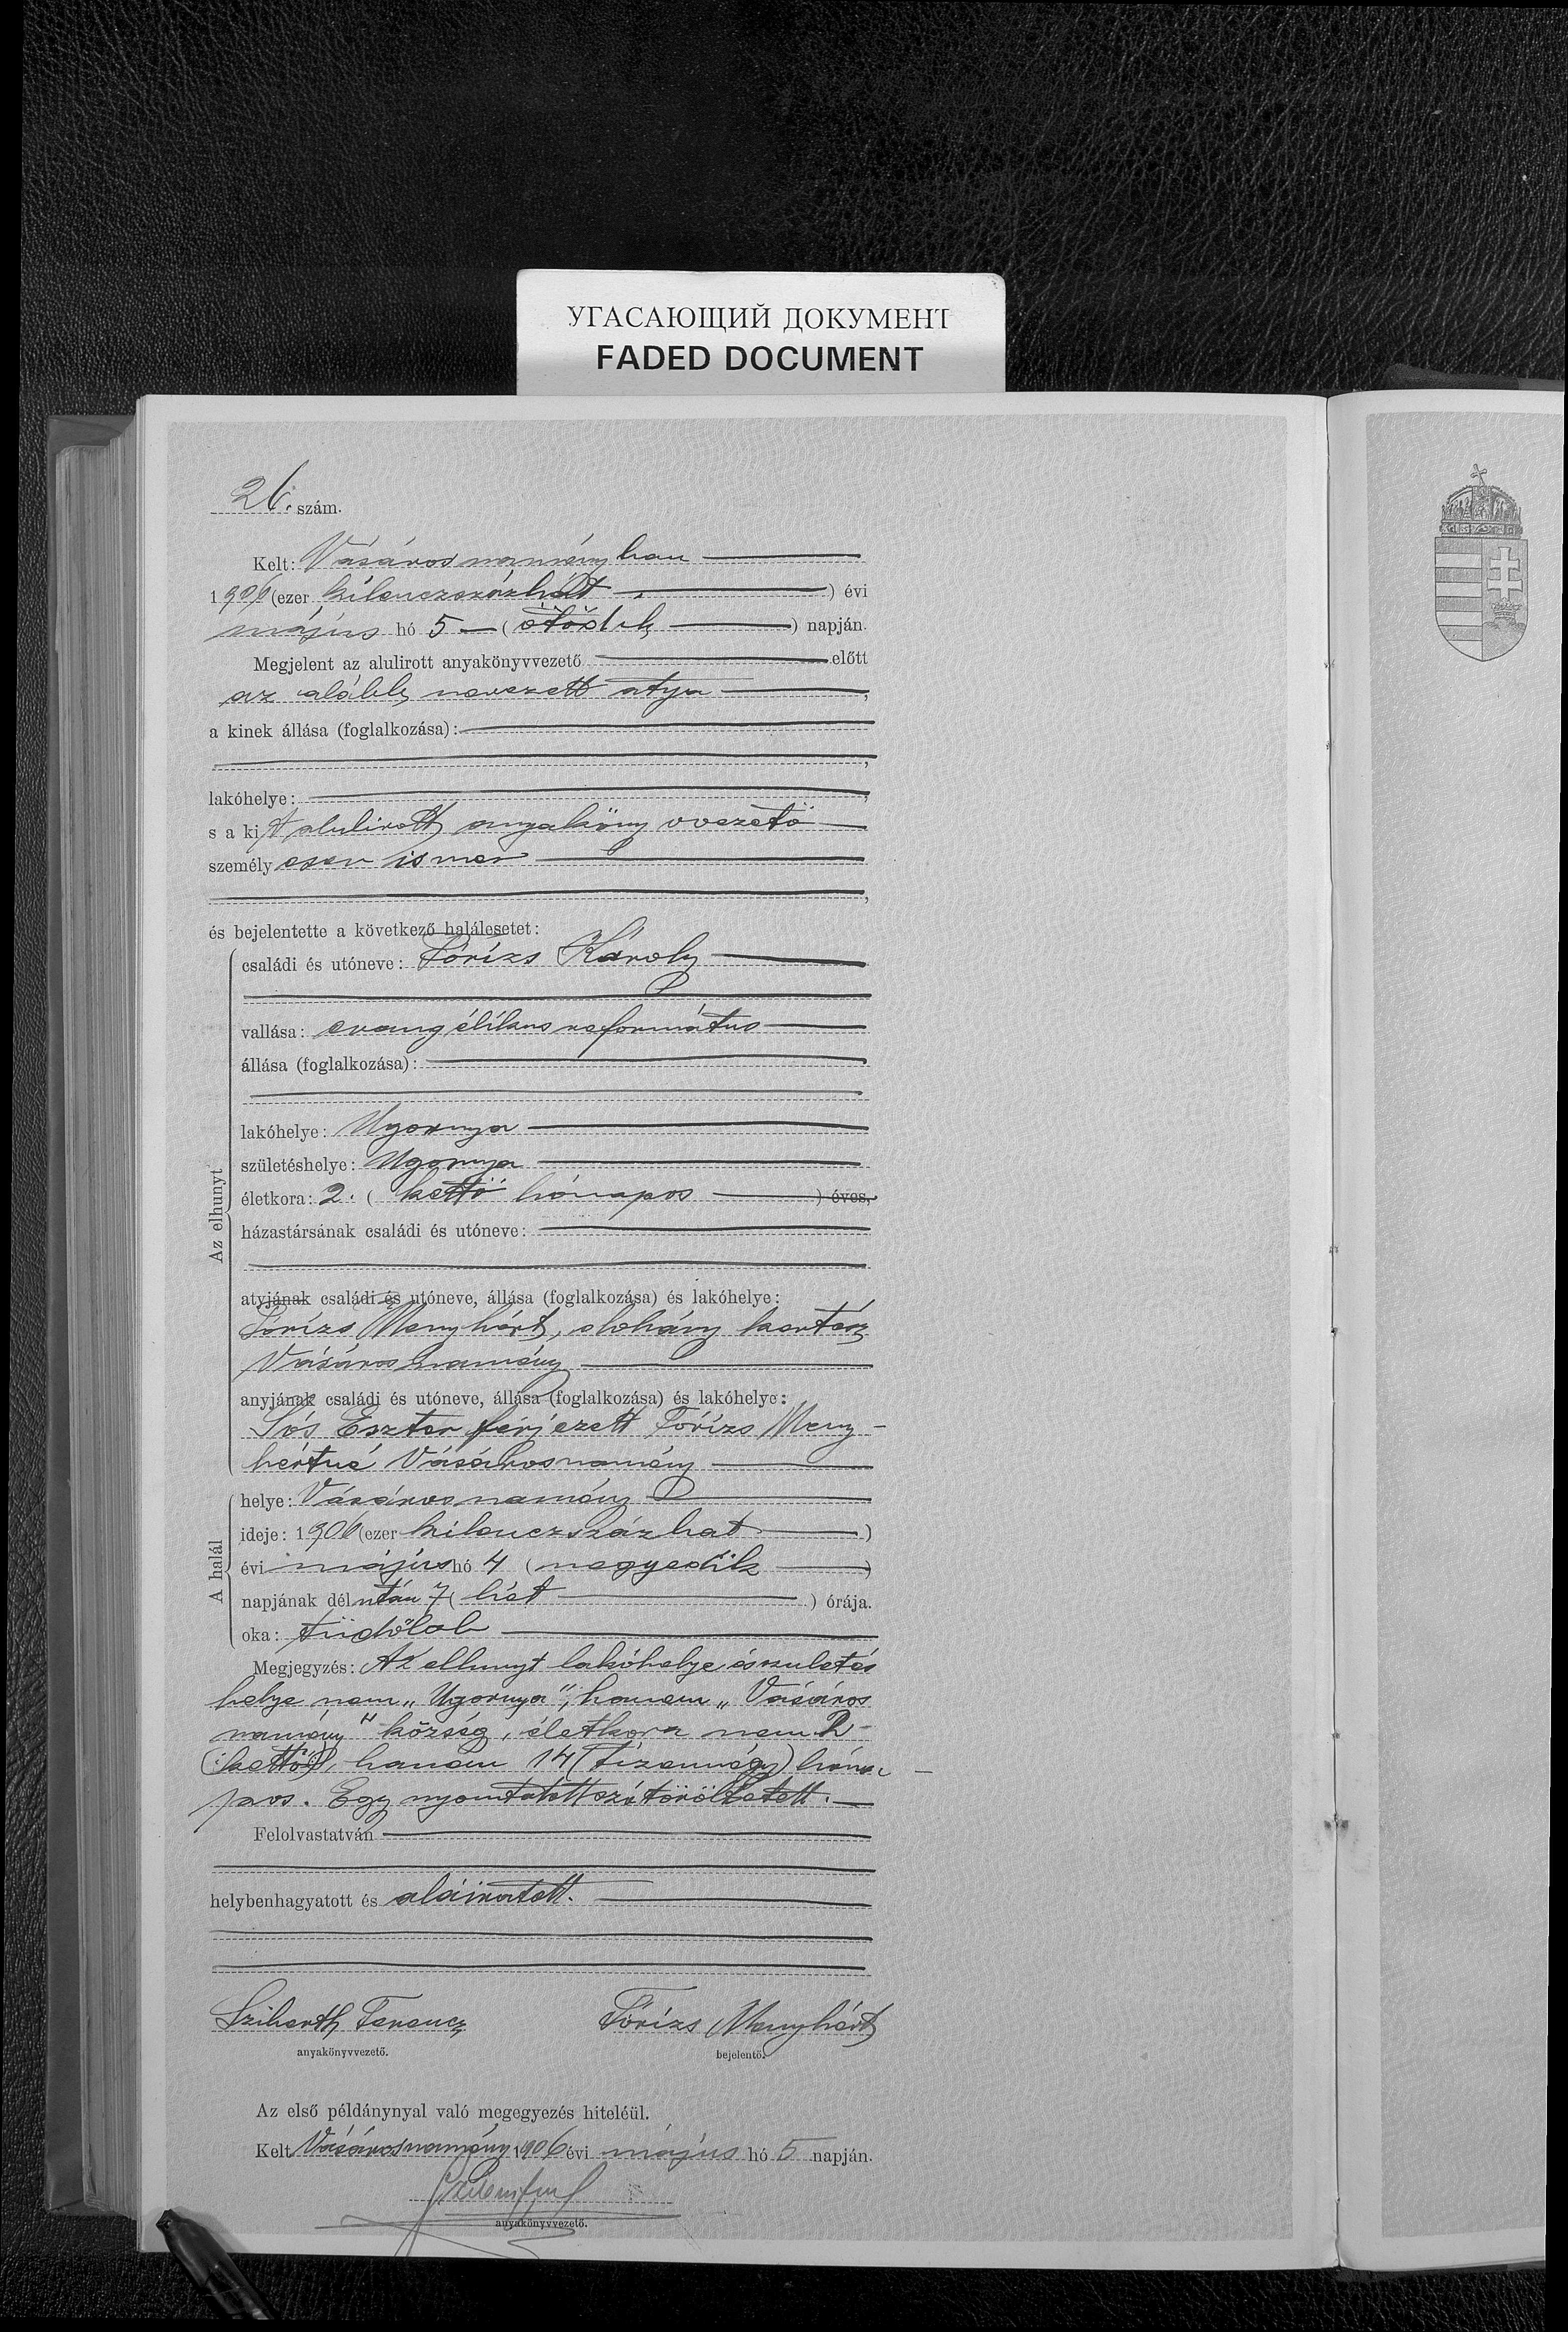 УГАСАЮЩИЙ ДОКУМЕНТ
FADED DOCUMENT
26. szám.
Kelt: Vásárosnaményban
1906 (ezer kilenczszázhat) évi
május hó 5 (ötödik) napján.
Megjelent az alulirott anyakönyvvezető előtt
az alább nevezett atya,
a kinek állása (foglalkozása):
lakóhelye:
s a kit alulirott anyakönyvvezető
személyesen ismer
és bejelentette a következő halálesetet:
Az elhunyt
családi és utóneve: Törízs Károly
vallása: evangélikus református
állása (foglalkozása):
lakóhelye: Ugornya
születéshelye: Ugornya
életkora: 2. (kettő hónapos) éves,
házastársának családi és utóneve:
atyjának családi és utóneve, állása (foglalkozása) és lakóhelye:
Törízs Menyhért, dohány kertész
Vásárosnamény
anyjának családi és utóneve, állása (foglalkozása) és lakóhelye:
Sós Eszter férjezett Törízs Meny-
hértné Vásárosnamény
A halál
helye: Vásárosnamény
ideje: 1906 (ezer kilenczszázhat)
évi május hó 4 (negyedik)
napjának délután 7 (hét) órája.
oka: tüdőlob
Megjegyzés: Az elhunyt lakóhelye és születés
helye nem „Ugornya", hanem „Vásáros
namény" község, életkora nem 2
(kettő), hanem 14 (tizennégy) hóna
pos. Egy nyomtatott szó töröltetett.
Felolvastatván
helybenhagyatott és aláiratott.
Sziberth Ferencz Törízs Menyhért
anyakönyvvezető. bejelentő.
Az első példánynyal való megegyezés hiteléül.
Kelt Vásárosnamény 1906 évi május hó 5 napján.
anyakönyvvezető.